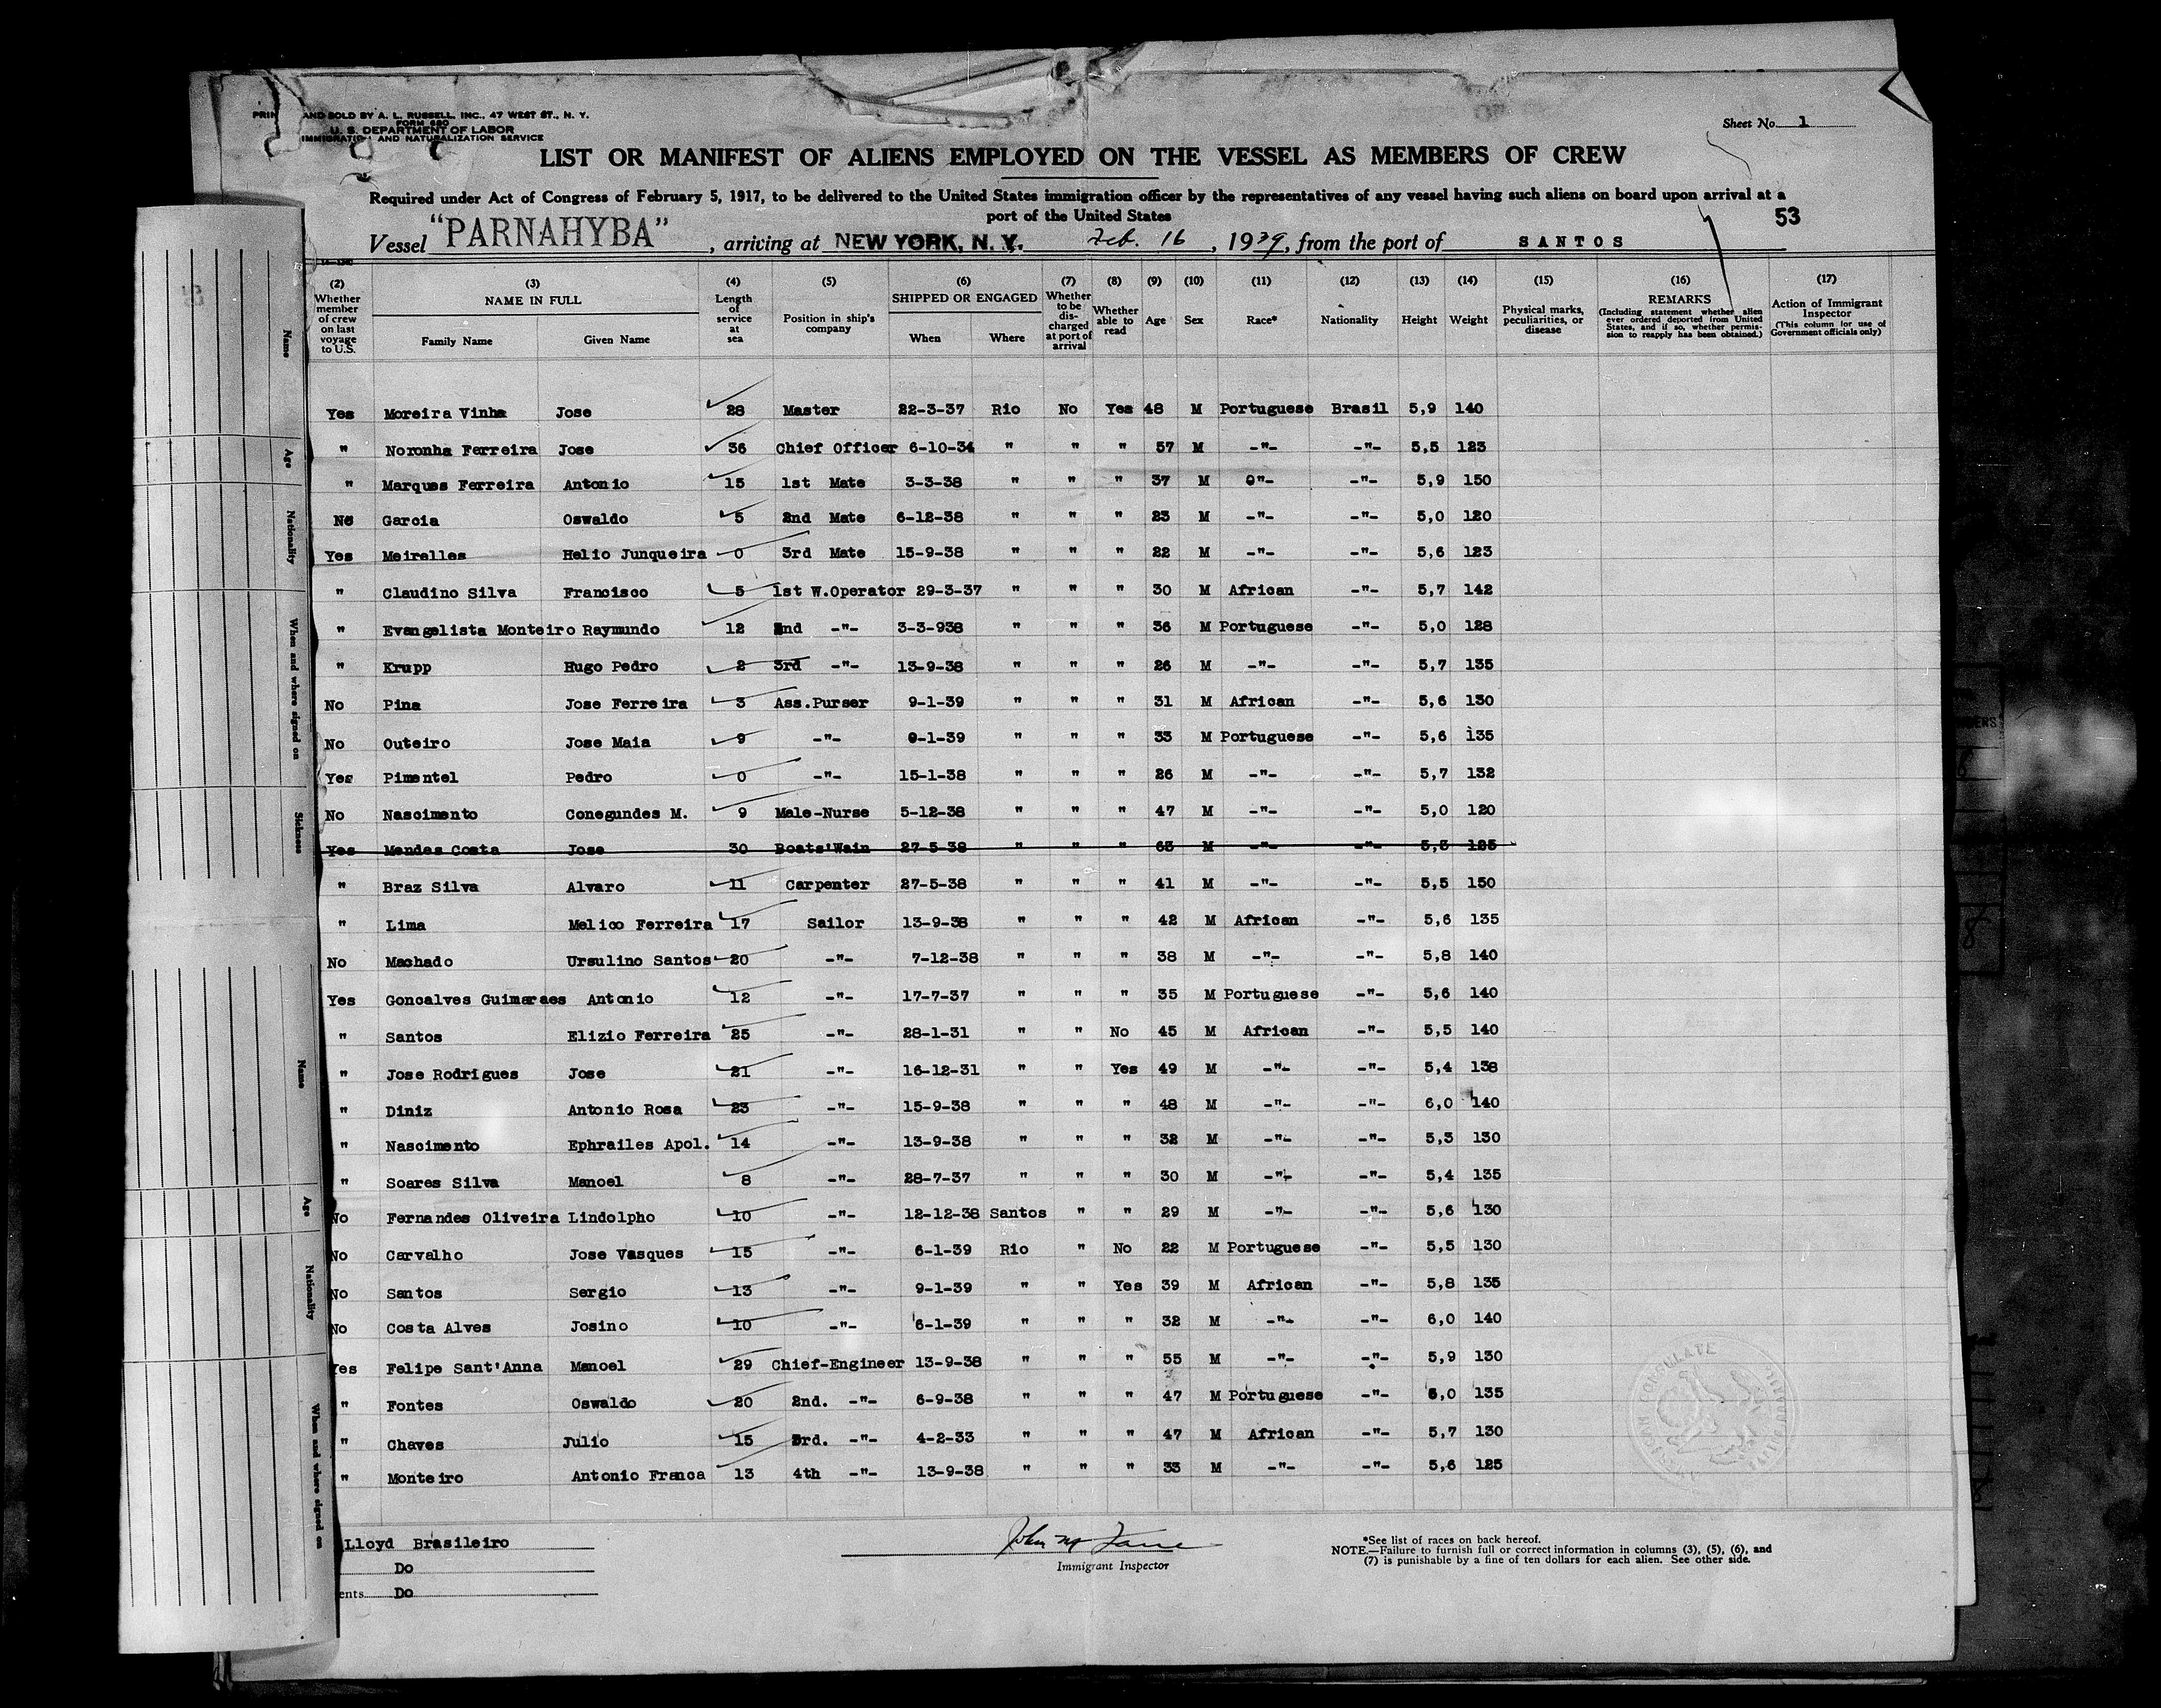 PRIN AND SOLD BY A. L. RUSSELL, INC., 47 WEST ST., N. Y.
FORM 680
U. S. DEPARTMENT OF LABOR
IMMIGRATION AND NATURALIZATION SERVICE
Sheet No. 1
LIST OR MANIFEST OF ALIENS EMPLOYED ON THE VESSEL AS MEMBERS OF CREW
Required under Act of Congress of February 5, 1917, to be delivered to the United States immigration officer by the representatives of any vessel having such aliens on board upon arrival at a
port of the United States
53
Vessel "PARNAHYBA", arriving at NEW YORK, N. Y. Feb. 16, 1939, from the port of SANTOS
(2) (3) (4) (5) (6) (7) (8) (9) (10) (11) (12) (13) (14) (15) (16) (17)
Whether member of crew on last voyage to U.S. NAME IN FULL Family Name Given Name Length of service at sea Position in ship's company SHIPPED OR ENGAGED When Where Whether to be discharged at port of arrival Whether able to read Age Sex Race* Nationality Height Weight Physical marks, peculiarities, or disease REMARKS (Including statement whether alien ever ordered deported from United States, and if so, whether permission to reapply has been obtained.) Action of Immigrant Inspector (This column for use of Government officials only)
Yes Moreira Vinha Jose 28 Master 22-3-37 Rio No Yes 48 M Portuguese Brasil 5,9 140
" Noronha Ferreira Jose 36 Chief Officer 6-10-34 " " " 57 M -"- -"- 5,5 123
" Marques Ferreira Antonio 15 1st Mate 3-3-38 " " " 37 M 0"- -"- 5,9 150
No Garcia Oswaldo 5 2nd Mate 6-12-38 " " " 23 M -"- -"- 5,0 120
Yes Meirelles Helio Junqueira 0 3rd Mate 15-9-38 " " " 22 M -"- -"- 5,6 123
" Claudino Silva Francisco 5 1st W.Operator 29-3-37 " " " 30 M African -"- 5,7 142
" Evangelista Monteiro Raymundo 12 2nd -"- 3-3-938 " " " 36 M Portuguese -"- 5,0 128
" Krupp Hugo Pedro 2 3rd -"- 13-9-38 " " " 26 M -"- -"- 5,7 135
No Pina Jose Ferreira 3 Ass.Purser 9-1-39 " " " 31 M African -"- 5,6 130
No Outeiro Jose Maia 9 -"- 9-1-39 " " " 33 M Portuguese -"- 5,6 135
Yes Pimentel Pedro 0 -"- 15-1-38 " " " 26 M -"- -"- 5,7 132
No Nascimento Conegundes M. 9 Male-Nurse 5-12-38 " " " 47 M -"- -"- 5,0 120
Yes Mendes Costa Jose 30 Boats'Wain 27-5-38 " " " 63 M -"- -"- 5,3 125
" Braz Silva Alvaro 11 Carpenter 27-5-38 " " " 41 M -"- -"- 5,5 150
" Lima Melico Ferreira 17 Sailor 13-9-38 " " " 42 M African -"- 5,6 135
No Machado Ursulino Santos 20 -"- 7-12-38 " " " 38 M -"- -"- 5,8 140
Yes Goncalves Guimaraes Antonio 12 -"- 17-7-37 " " " 35 M Portuguese -"- 5,6 140
" Santos Elizio Ferreira 25 -"- 28-1-31 " " No 45 M African -"- 5,5 140
" Jose Rodrigues Jose 21 -"- 16-12-31 " " Yes 49 M -"- -"- 5,4 138
" Diniz Antonio Rosa 23 -"- 15-9-38 " " " 48 M -"- -"- 6,0 140
" Nascimento Ephrailes Apol. 14 -"- 13-9-38 " " " 32 M -"- -"- 5,3 130
" Soares Silva Manoel 8 -"- 28-7-37 " " " 30 M -"- -"- 5,4 135
No Fernandes Oliveira Lindolpho 10 -"- 12-12-38 Santos " " 29 M -"- -"- 5,6 130
No Carvalho Jose Vasques 15 -"- 6-1-39 Rio " No 22 M Portuguese -"- 5,5 130
No Santos Sergio 13 -"- 9-1-39 " " Yes 39 M African -"- 5,8 135
No Costa Alves Josino 10 -"- 6-1-39 " " " 32 M -"- -"- 6,0 140
Yes Felipe Sant'Anna Manoel 29 Chief-Engineer 13-9-38 " " " 55 M -"- -"- 5,9 130
" Fontes Oswaldo 20 2nd. -"- 6-9-38 " " " 47 M Portuguese -"- 6,0 135
" Chaves Julio 15 3rd. -"- 4-2-33 " " " 47 M African -"- 5,7 130
" Monteiro Antonio Franca 13 4th -"- 13-9-38 " " " 33 M -"- -"- 5,6 125
Lloyd Brasileiro
Do
ents Do
Immigrant Inspector
*See list of races on back hereof.
NOTE.—Failure to furnish full or correct information in columns (3), (5), (6), and
(7) is punishable by a fine of ten dollars for each alien. See other side.
Name
Age
Nationality
When and where signed on
Sickness
Name
Age
Nationality
When and where signed on
AMERICAN CONSULATE